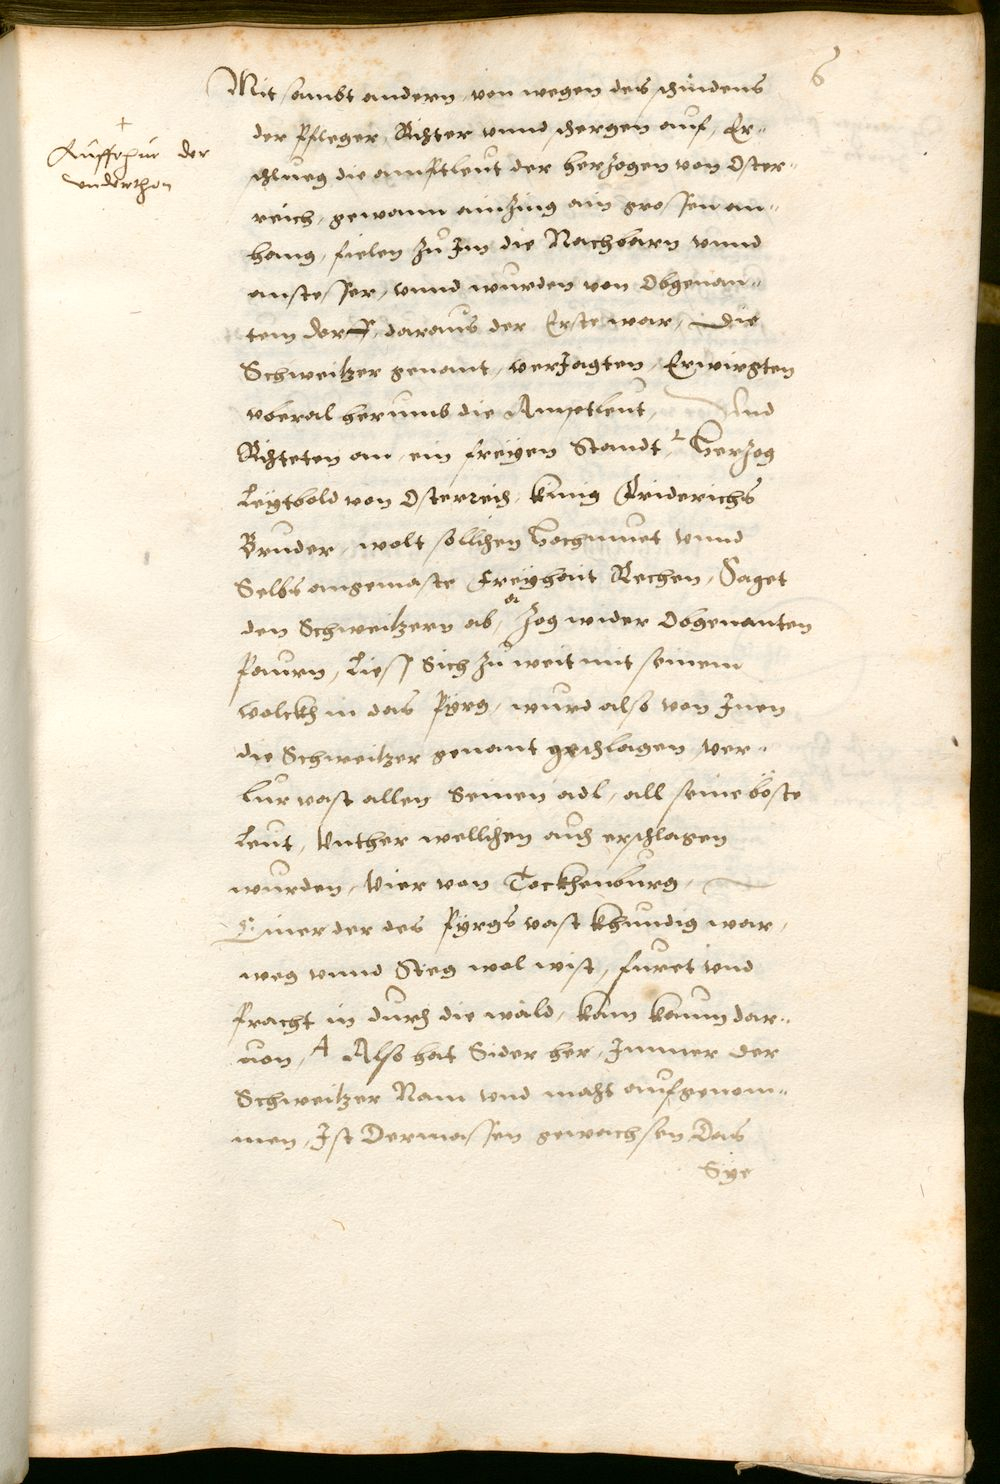 6
Mit sambt andern, von wegen des schindens
der Pfleger, Richter vnnd schergen auf, Er-
schlueg die amptleut der herzogen von Oster-
reich, gewann ainzing ain grossen an-
hang, fielen zu Jm die Nachbarn vnnd
anstesser, vnnd wurden von Obgenan-
tem dorff, daraus der Erste war, Die
Schweitzer genant, verjagten, Erwirgten
vberal herumb die Amptleut, Vnd
Richteten an, ein freyen Standt, Herzog
Leytbold von Osterreich, kunig Friderichs
Bruder, wolt sollichen Hochmuet vnnd
Selbs angemaste Freyhait Rechen, Saget
den Schweitzern ab, er Zog wider Obgenanten
Paurn, Liess Sich zu weit mit seinem
volckh in das Pyrg, wurd also von Jnen
die Schweitzer genant geschlagen, ver-
lur vast allen Seinen adl, all seine böste
Leut, Vnther wellichen auch erschlagen
wurden, Vier von Tockhenburg,
Einer der des Pyrgs vast khundig war,
weg vnnd Steg wol wist, furet vnd
pracht in durch die wäld, kam kaum dar-
uon, Also hat Sider her, Jmmer der
Schweitzer Nam vnd macht aufgenom-
men, Jst Dermassen gewachsen, Das
Sye
+
Auffrhur der
vnderthon